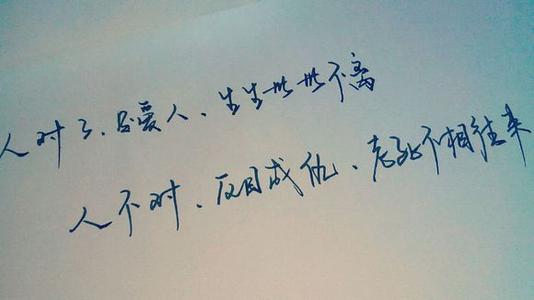 人对了、是爱人、生生世世不离
人不对、反目成仇、老死不相往来